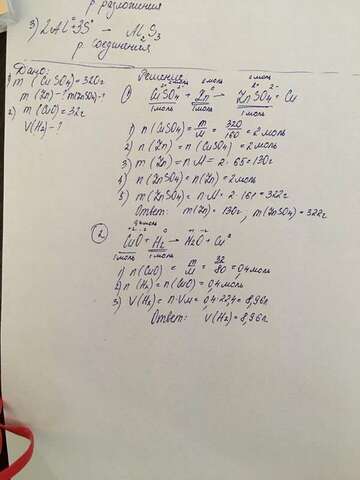 р разложения
3) 2Al⁰+3S⁰ → Al₂S₃
р соединения
Дано:
1) m (CuSO₄)=320г
m (Zn)-? m(ZnSO₄)-?
2) m (CuO)= 32г
V(H₂)-?
Решение
2 моль 2 моль
① CuSO₄ + Zn⁰ → ZnSO₄ + Cu
1 моль 1 моль 1 моль
1) n (CuSO₄) = m/M = 320/160 = 2 моль
2) n (Zn) = n (CuSO₄) = 2 моль
3) m (Zn) = n·M = 2·65 = 130г
4) n (ZnSO₄) = n(Zn) = 2 моль
5) m (ZnSO₄) = n·M = 2·161 = 322г
Ответ: m(Zn) = 130г, m(ZnSO₄) = 322г
0,4 моль
② CuO + H₂ → H₂O + Cu⁰
1 моль 1 моль
1) n (CuO) = m/M = 32/80 = 0,4 моль
2) n (H₂) = n (CuO) = 0,4 моль
3) V(H₂) = n·Vм = 0,4·22,4 = 8,96л
Ответ: V(H₂) = 8,96л